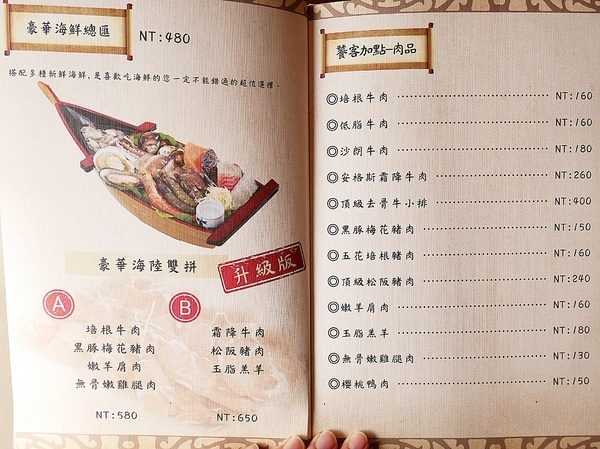 豪華海鮮總匯
NT:480
搭配多種新鮮海鮮,是喜歡吃海鮮的您一定不能錯過的超值選擇。
豪華海陸雙拼
升級版
A
培根牛肉
黑豚梅花豬肉
嫩羊肩肉
無骨嫩雞腿肉
NT:580
B
霜降牛肉
松阪豬肉
玉脂羔羊
NT:650
饕客加點-肉品
◎培根牛肉 NT:160
◎低脂牛肉 NT:160
◎沙朗牛肉 NT:180
◎安格斯霜降牛肉 NT:260
◎頂級去骨牛小排 NT:400
◎黑豚梅花豬肉 NT:150
◎五花培根豬肉 NT:160
◎頂級松阪豬肉 NT:240
◎嫩羊肩肉 NT:160
◎玉脂羔羊 NT:180
◎無骨嫩雞腿肉 NT:130
◎櫻桃鴨肉 NT:150